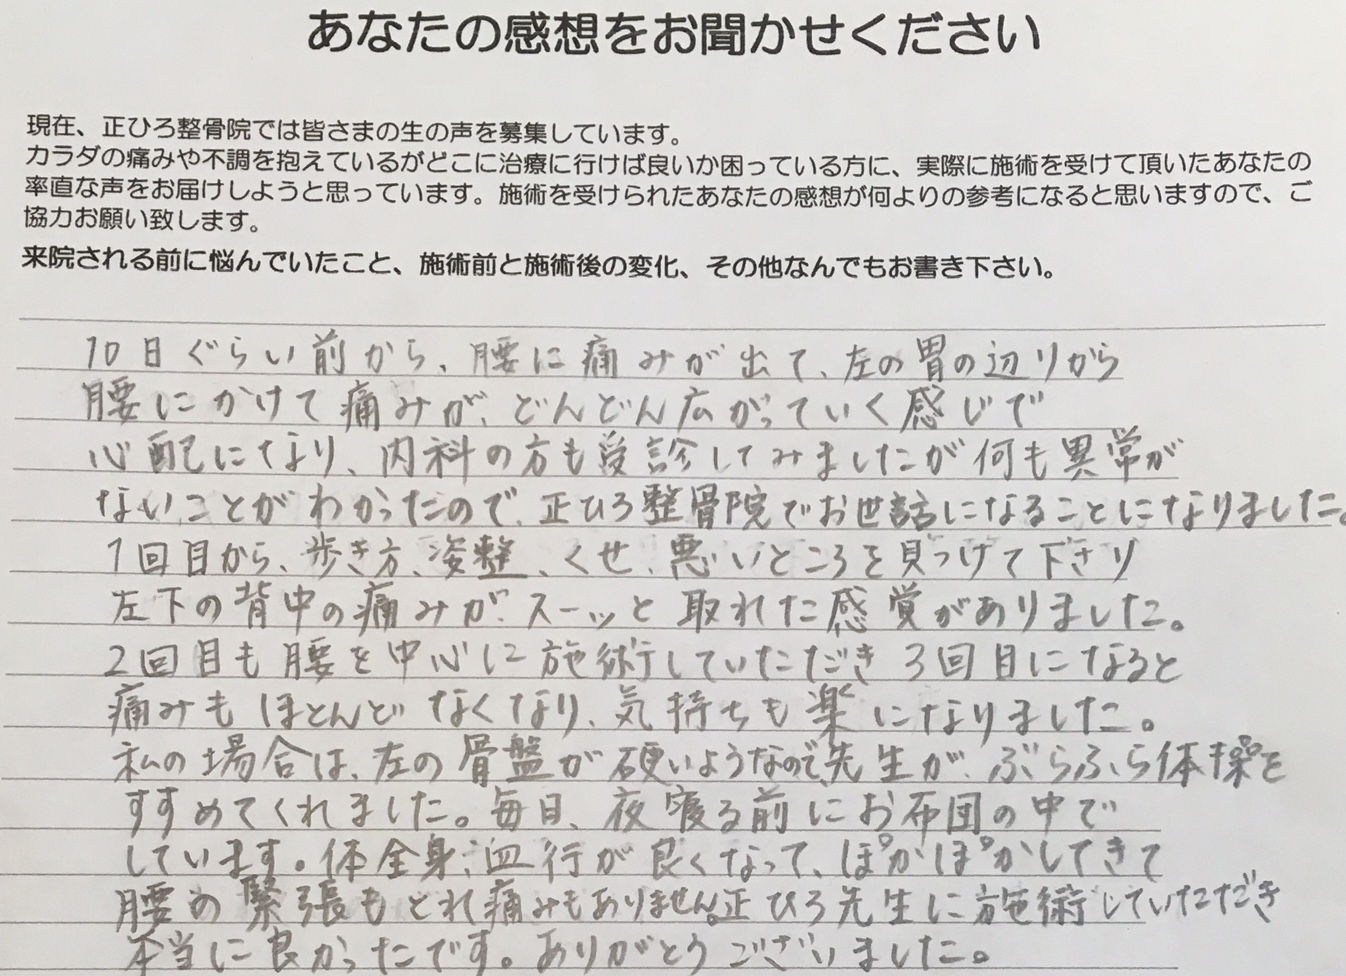 あなたの感想をお聞かせください
現在、正ひろ整骨院では皆さまの生の声を募集しています。
カラダの痛みや不調を抱えているがどこに治療に行けば良いか困っている方に、実際に施術を受けて頂いたあなたの
率直な声をお届けしようと思っています。施術を受けられたあなたの感想が何よりの参考になると思いますので、ご
協力お願い致します。
来院される前に悩んでいたこと、施術前と施術後の変化、その他なんでもお書き下さい。
10日ぐらい前から、腰に痛みが出て、左の胃の辺りから
腰にかけて痛みが、どんどん広がっていく感じで
心配になり、内科の方も受診してみましたが何も異常が
ないことがわかったので、正ひろ整骨院でお世話になることになりました。
1回目から、歩き方、姿整、くせ、悪いところを見つけて下さり
左下の背中の痛みが、スーッと取れた感覚がありました。
2回目も腰を中心に施術していただき3回目になると
痛みもほとんどなくなり、気持ちも楽になりました。
私の場合は、左の骨盤が硬いようなので、先生が、ぶらぶら体操を
すすめてくれました。毎日、夜寝る前にお布団の中で
しています。体全身、血行が良くなって、ぽかぽかしてきて
腰の緊張もとれ痛みもありません。正ひろ先生に施術していただき
本当に良かったです。ありがとうございました。